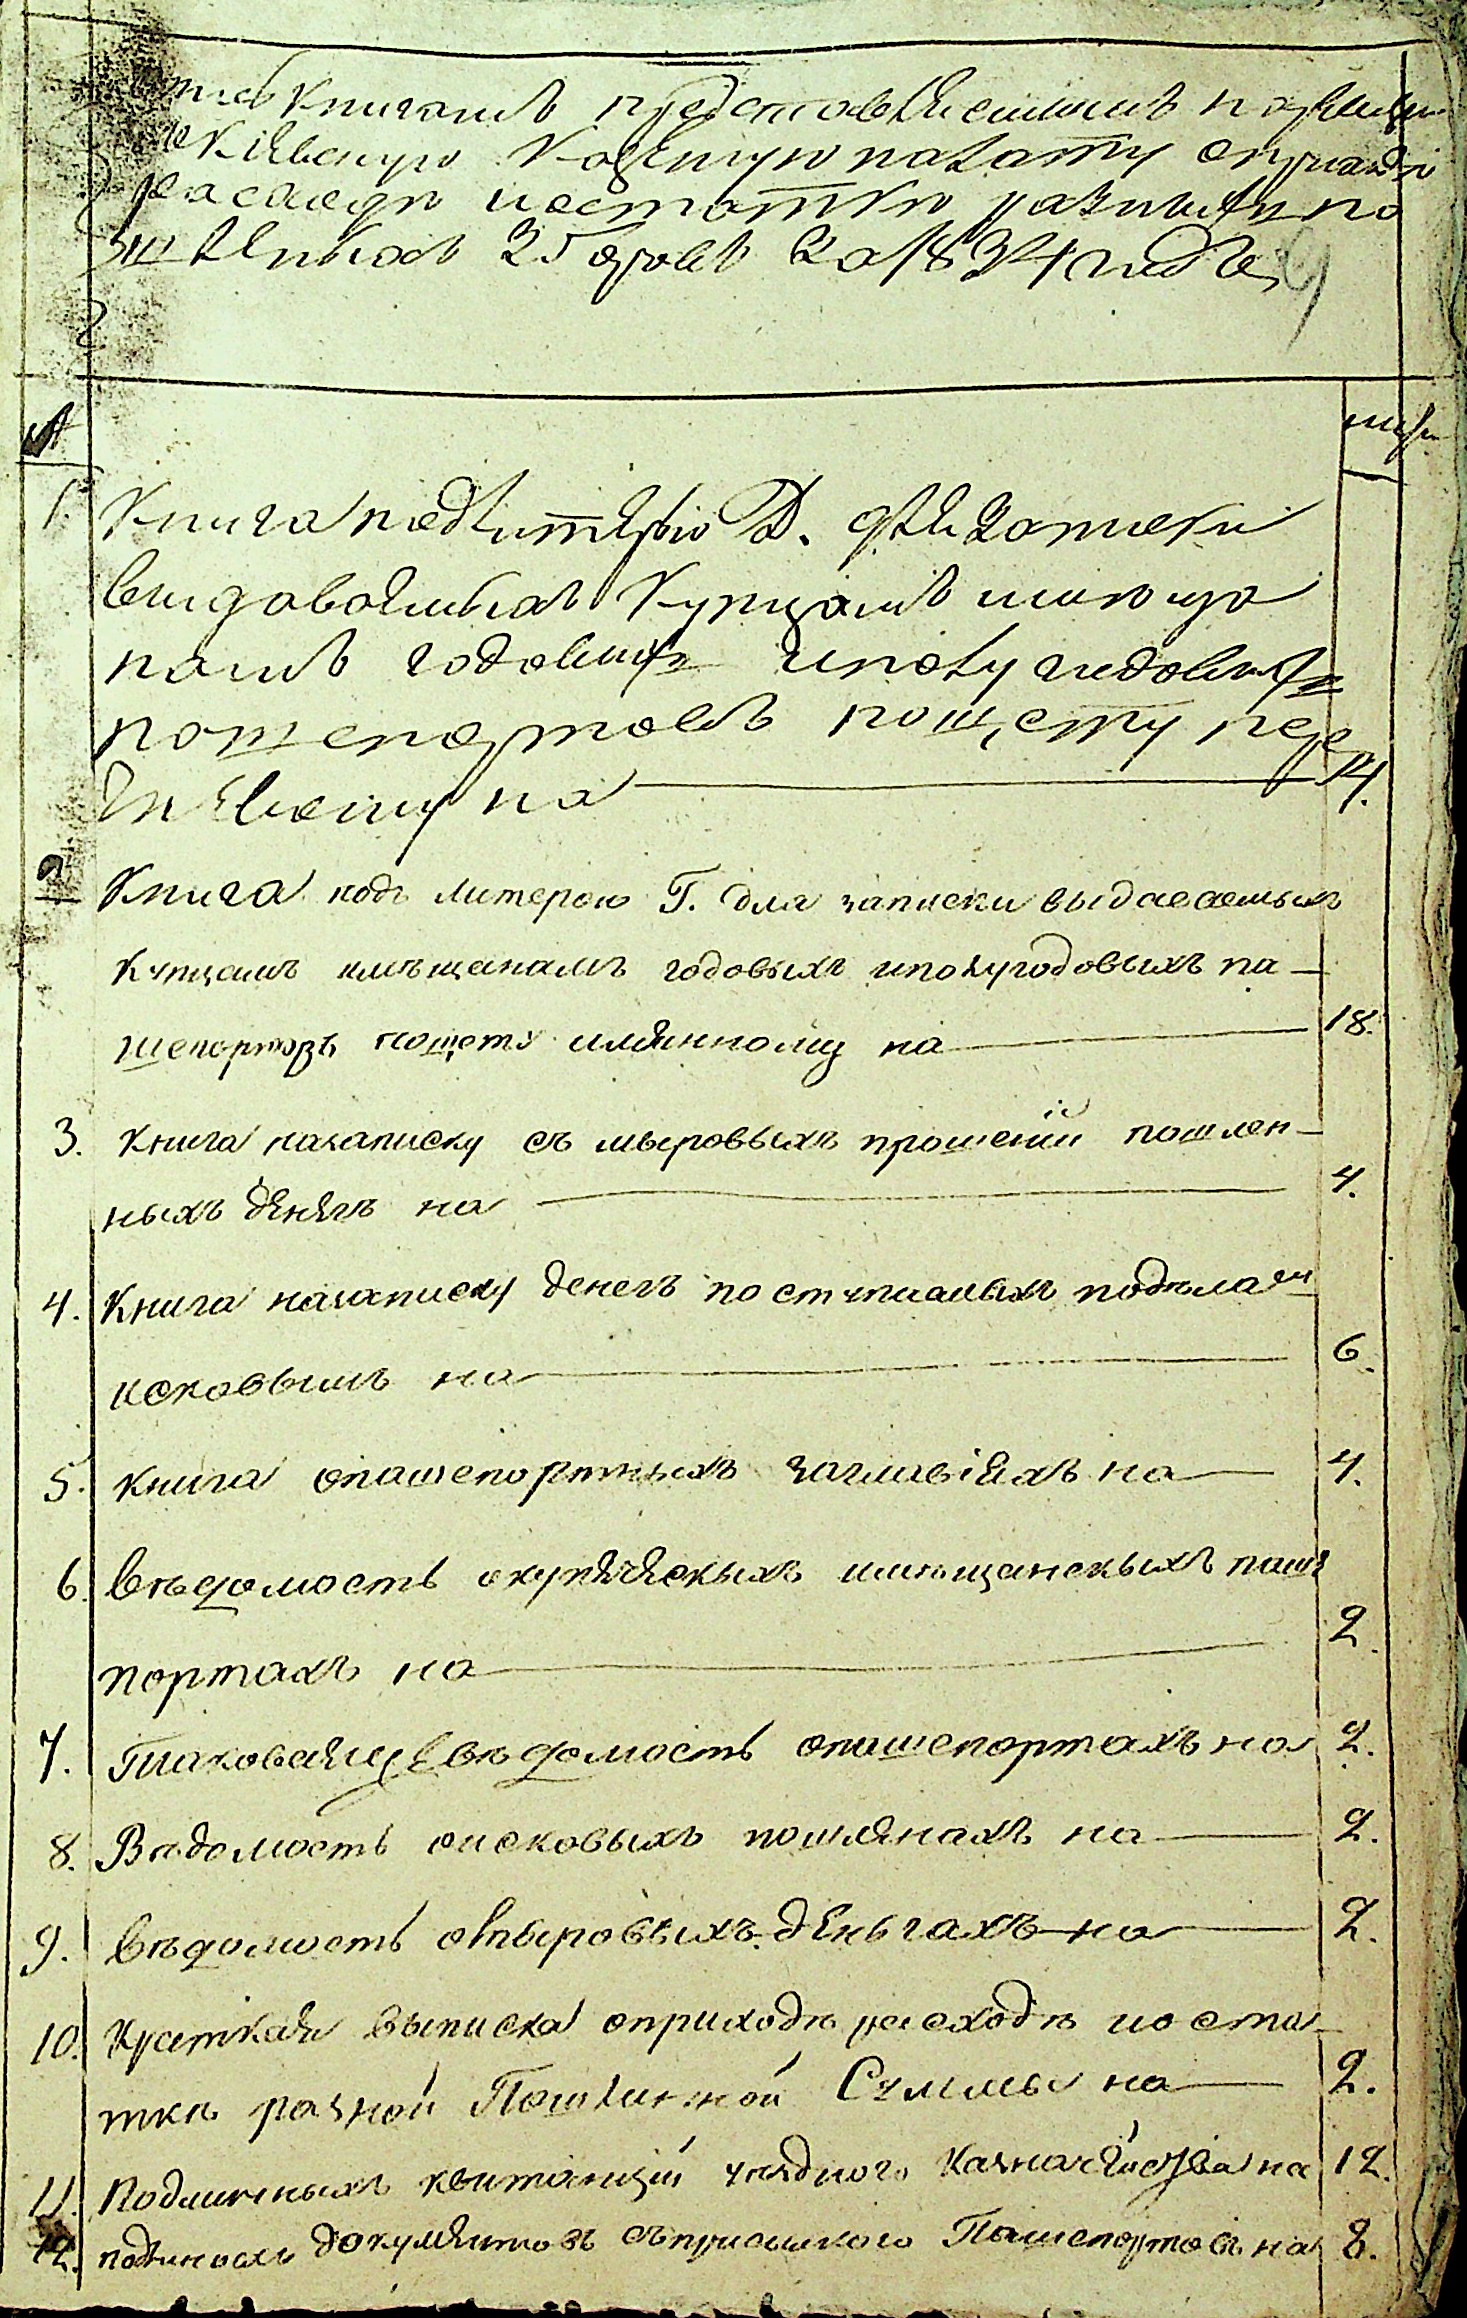 книгамъ представляемымъ
Кіевскую Казенную палату
расходѣ и остаткѣ разныхъ по
шлинныхъ за 1834 годъ
№
1. Книга подъ литерою Д. для записки
выдаваемыхъ купцамъ и мѣща
намъ годовыхъ и полугодовыхъ
пашепортовъ по щету
на 14.
2. Книга подъ литерою Г. для записки выдаваемыхъ
купцамъ имѣщанамъ годовыхъ иполугодовыхъ па-
шепортовъ пощету имянному на 18.
3. Книганазаписку съ мыровыхъ прошеній пошлен-
ныхъ денягъ на 4.
4. Книга назаписку денегъ поступиамыхъ
исковымъ на 6.
5. Книга опашепортныхъ заглавіяхъ на 4.
6. Вѣдомость окупячяскыхъ имѣщанскыхъ паше
портахъ на 2.
7. Таковаяже вѣдомость опашепортахъ на 2.
8. Вѣдомость оисковыхъ пошлянахъ на 2.
9. Вѣдомость омыровыхъ деньгахъ на 2.
10. Краткая выписка оприходѣ расходѣ иоста-
ткѣ разной Пошлинной Суммы на 2.
11. Подлинныхъ квитанцій уѣздного Казначейства на 12.
12. подлиныхъ документовъ Пашепортовъ на 8.